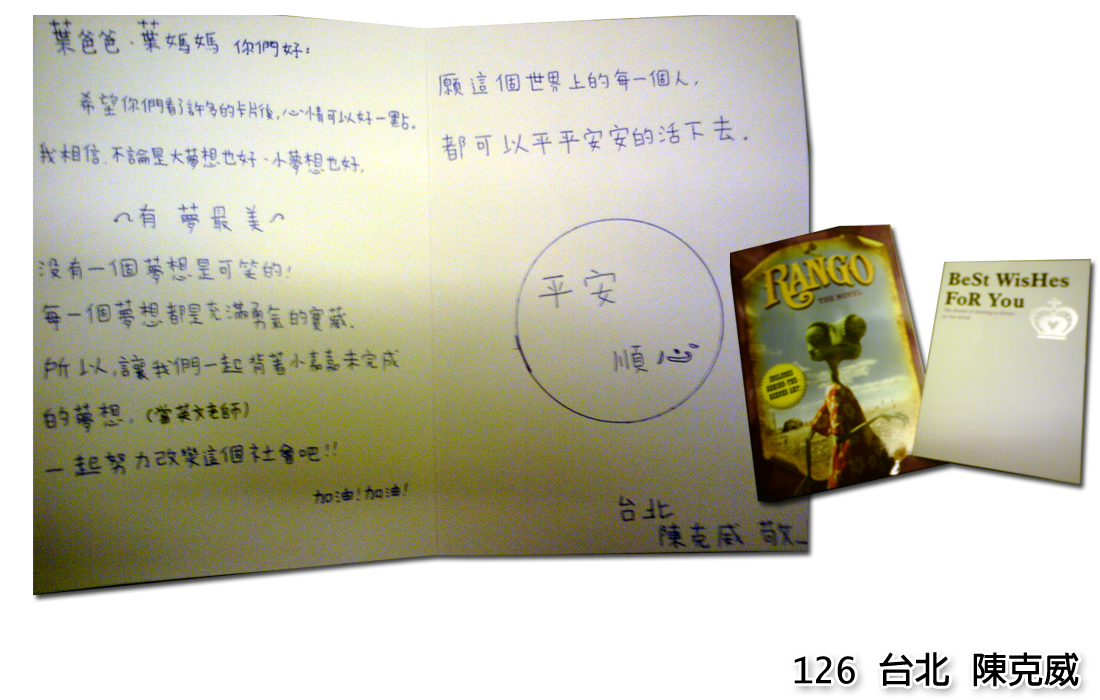 葉爸爸、葉媽媽 你們好:
希望你們看了許多的卡片後,心情可以好一點。
我相信,不論是大夢想也好、小夢想也好,
~有 夢最美~
沒有一個夢想是可笑的!
每一個夢想都是充滿勇氣的寶藏。
所以,讓我們一起背著小嘉嘉未完成
的夢想。(當英文老師)
一起努力改變這個社會吧!!
加油!加油!
願這個世界上的每一個人,
都可以平平安安的活下去。
平安
順心
台北
陳克威 敬
RANGO
THE NOVEL
INCLUDES
BEHIND-THE-
SCENES ART
BeSt WisHes
FoR You
126 台北 陳克威